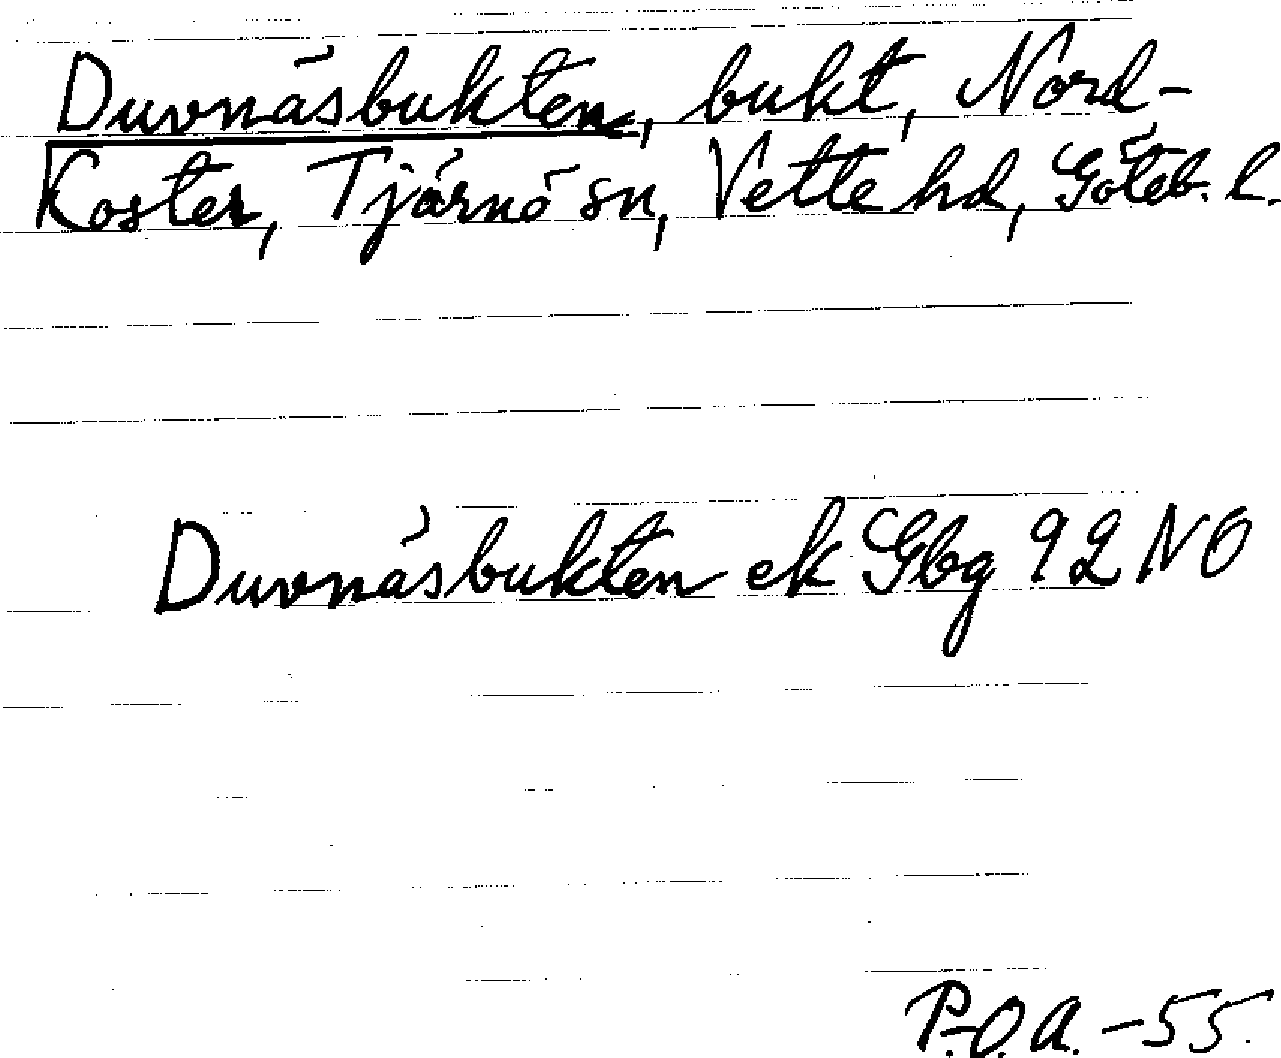 Duvnäsbukten, bukt, Nord-
Koster, Tjärnö sn, Vette hd, Göteb. l.
Duvnäsbukten ek Gbg 92 NO
P.-O. A. -55.